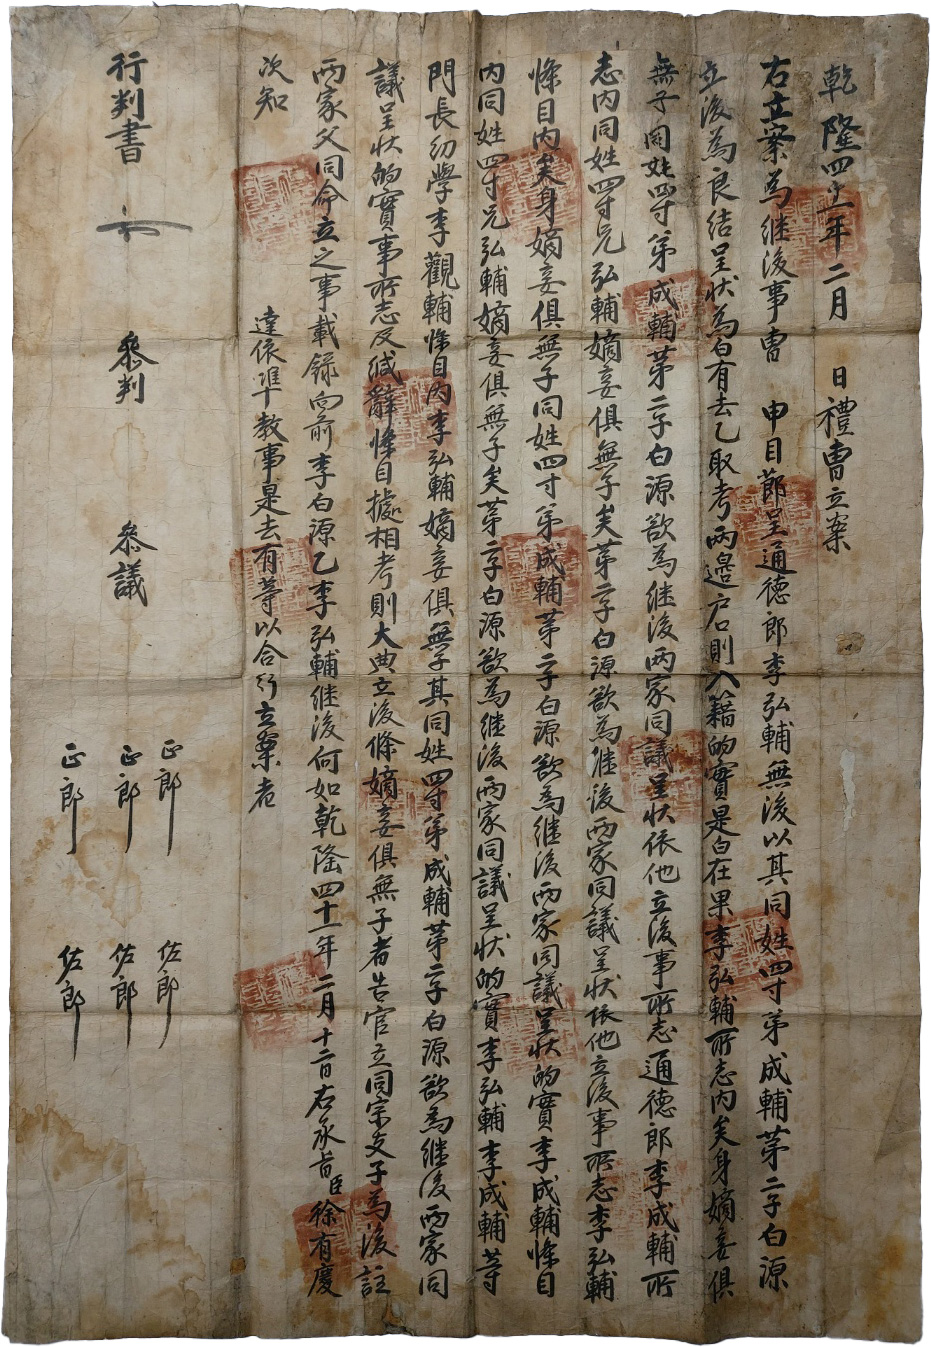 乾隆四十一年二月 日禮曹立案
右立案為継後事曹 申目節呈通德郎李弘輔無後以其同姓四寸弟成輔苐二子白源
立後為良結呈狀為白有去乙取考兩邊戶口則入籍的實是白在果李弘輔所志內矣身嫡妾俱
無子同姓四寸弟成輔苐二子白源欲為継後兩家同議呈狀依他立後事所志通德郎李成輔所
志內同姓四寸兄弘輔嫡妾俱無子矣苐二子白源欲為継後兩家同議呈狀依他立後事所志李弘輔
條目內矣身嫡妾俱無子同姓四寸弟成輔苐二子白源欲為継後兩家同議呈狀的實李成輔條目
內同姓四寸兄弘輔嫡妾俱無子矣苐二子白源欲為継後兩家同議呈狀的實李弘輔李成輔等
門長幼學李觀輔條目內李弘輔嫡妾俱無子其同姓四寸弟成輔苐二子白源欲為継後兩家同
議呈狀的實事所志及緘辭條目據相考則大典立後條嫡妾俱無子者告官立同宗支子為後註
兩家父同命立之事載錄向前李白源乙李弘輔継後何如乾隆四十一年二月十二日右承旨臣徐有慶
次知
達依準教事是去有等以合行立案者
行判書 參判 參議
正郎 佐郎
正郎 佐郎
正郎 佐郎